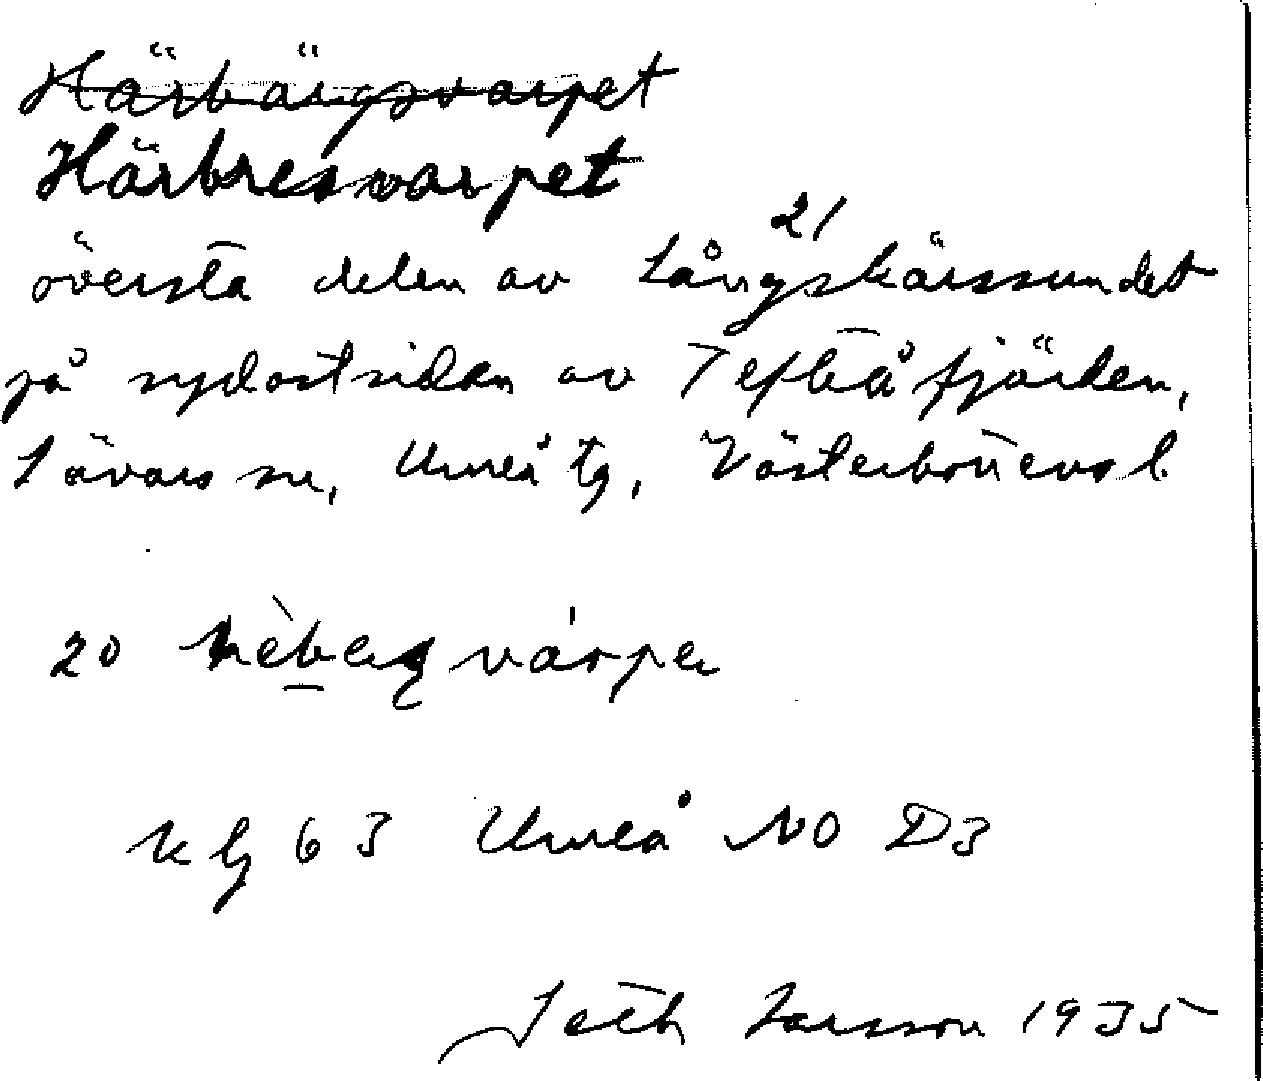 Härbärgsvarpet
Härbresvarpet
21
översta delen av Långskärssundet
på sydostsidan av Tefteåfjärden,
Sävars sn, Umeå tg, Västerbottens l.
20
kbl 63 Umeå NO D3
Seth Larsson 1935